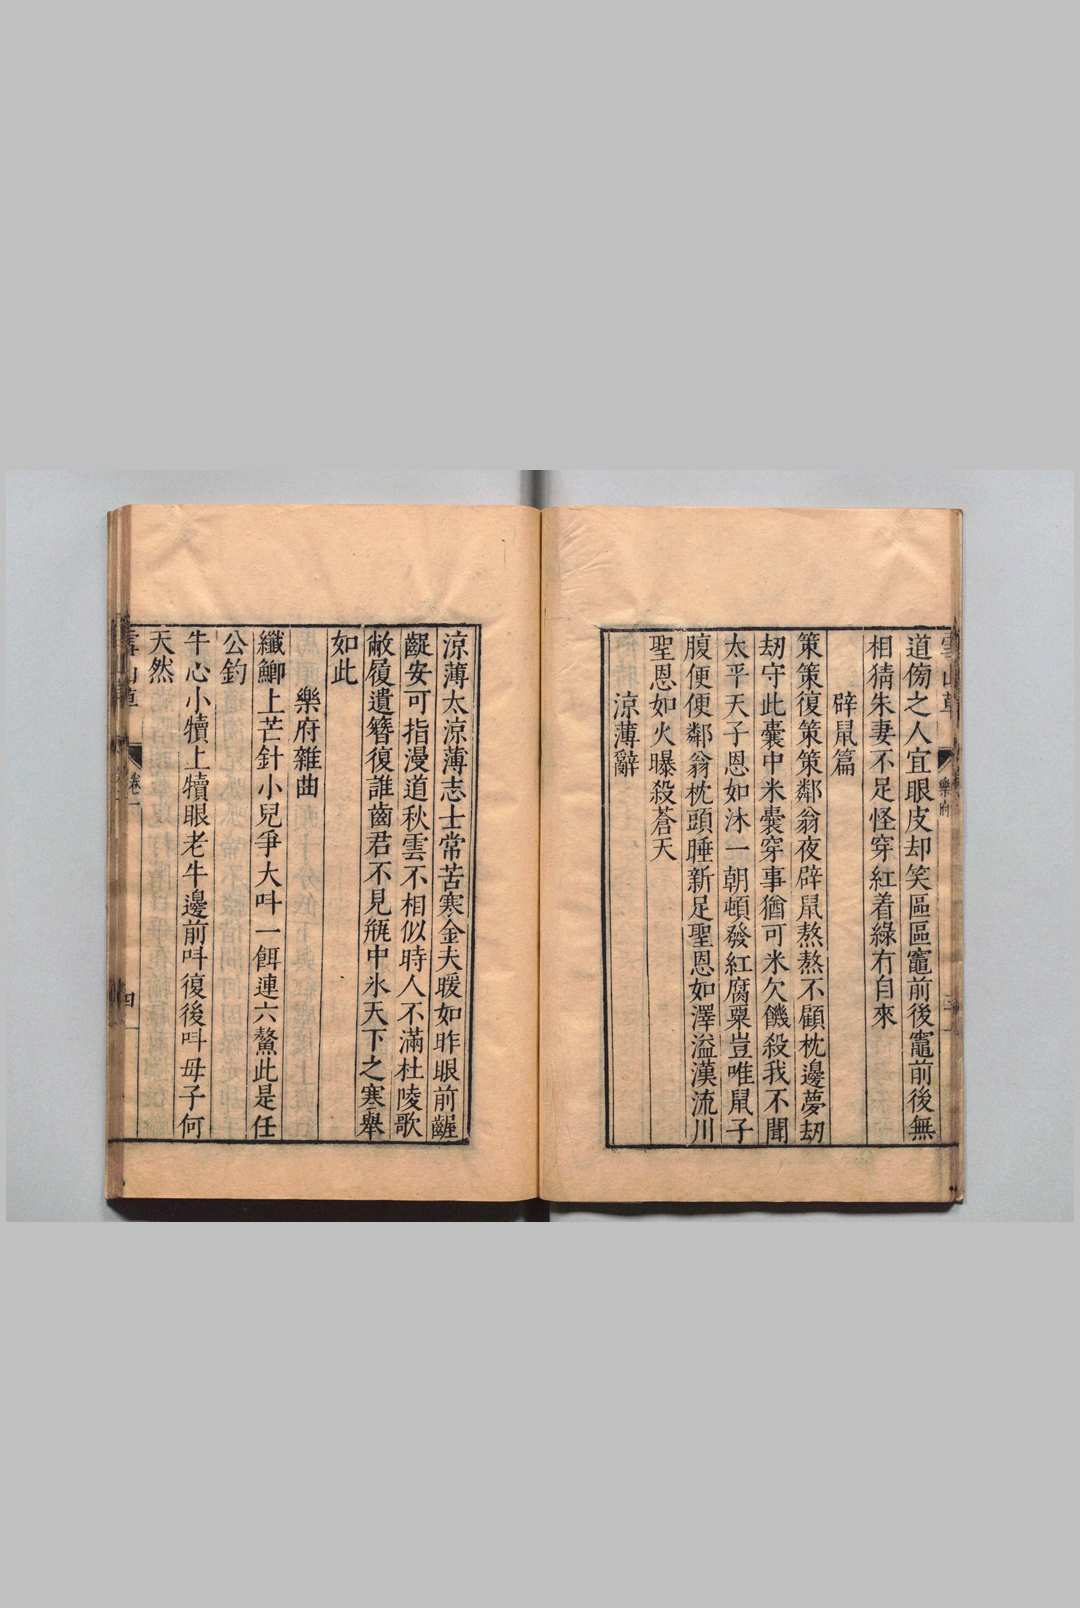 道傍之人宜眼皮却笑區區竈前後竈前後無
相猜朱妻不足怪穿紅着綠有自來
辟鼠篇
策策復策策鄰翁夜辟鼠熬熬不顧枕邊夢刧
刧守此囊中米囊穿事猶可米欠饑殺我不聞
太平天子恩如沐一朝頓發紅腐粟豈唯鼠子
腹便便鄰翁枕頭睡新足聖恩如澤溢漢流川
聖恩如火曝殺蒼天
涼薄辭
樂府
涼薄太涼薄志士常苦寒金夫暖如昨眼前齷
齪安可指漫道秋雲不相似時人不滿杜陵歌
敝履遺簪復誰齒君不見瓶中氷天下之寒舉
如此
樂府雜曲
纖鯽上芒針小兒爭大呌一餌連六鰲此是任
公釣
牛心小犢上犢眼老牛邊前呌復後呌母子何
天然
雲山草
卷一
四